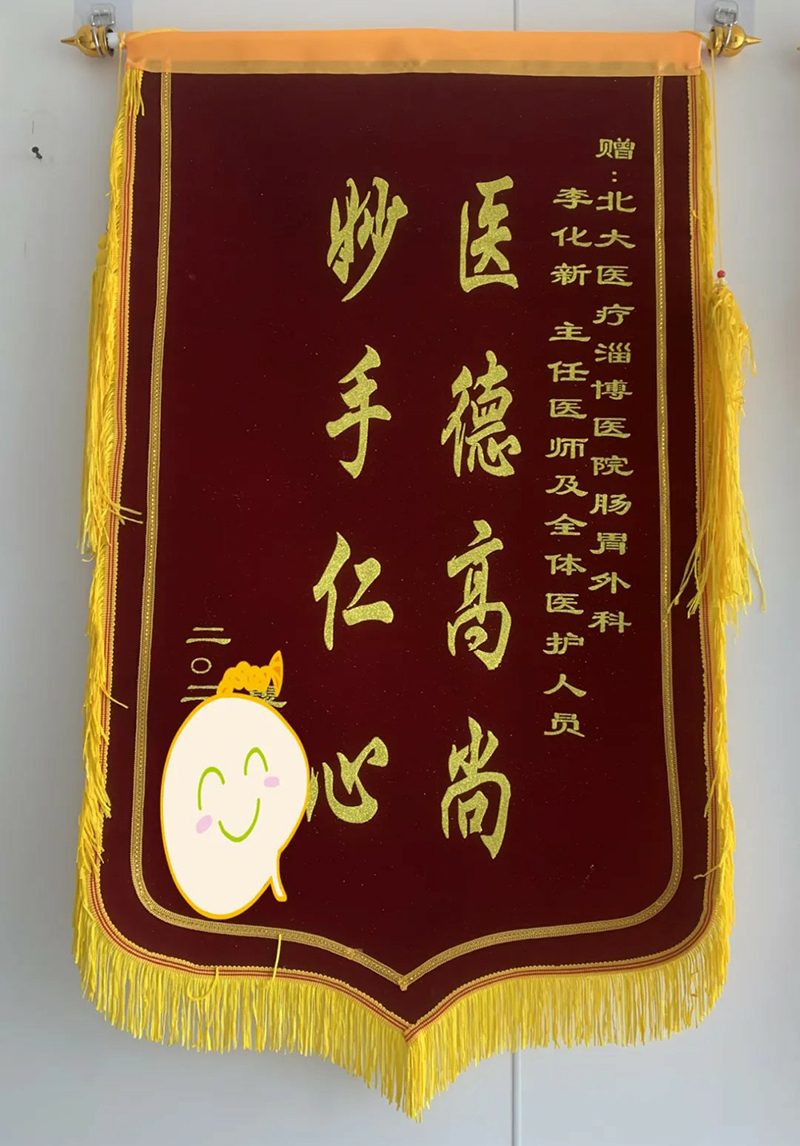 赠:北大医疗淄博医院肠胃外科
李化新 主任医师及全体医护人员
医德高尚
妙手仁心
二〇二